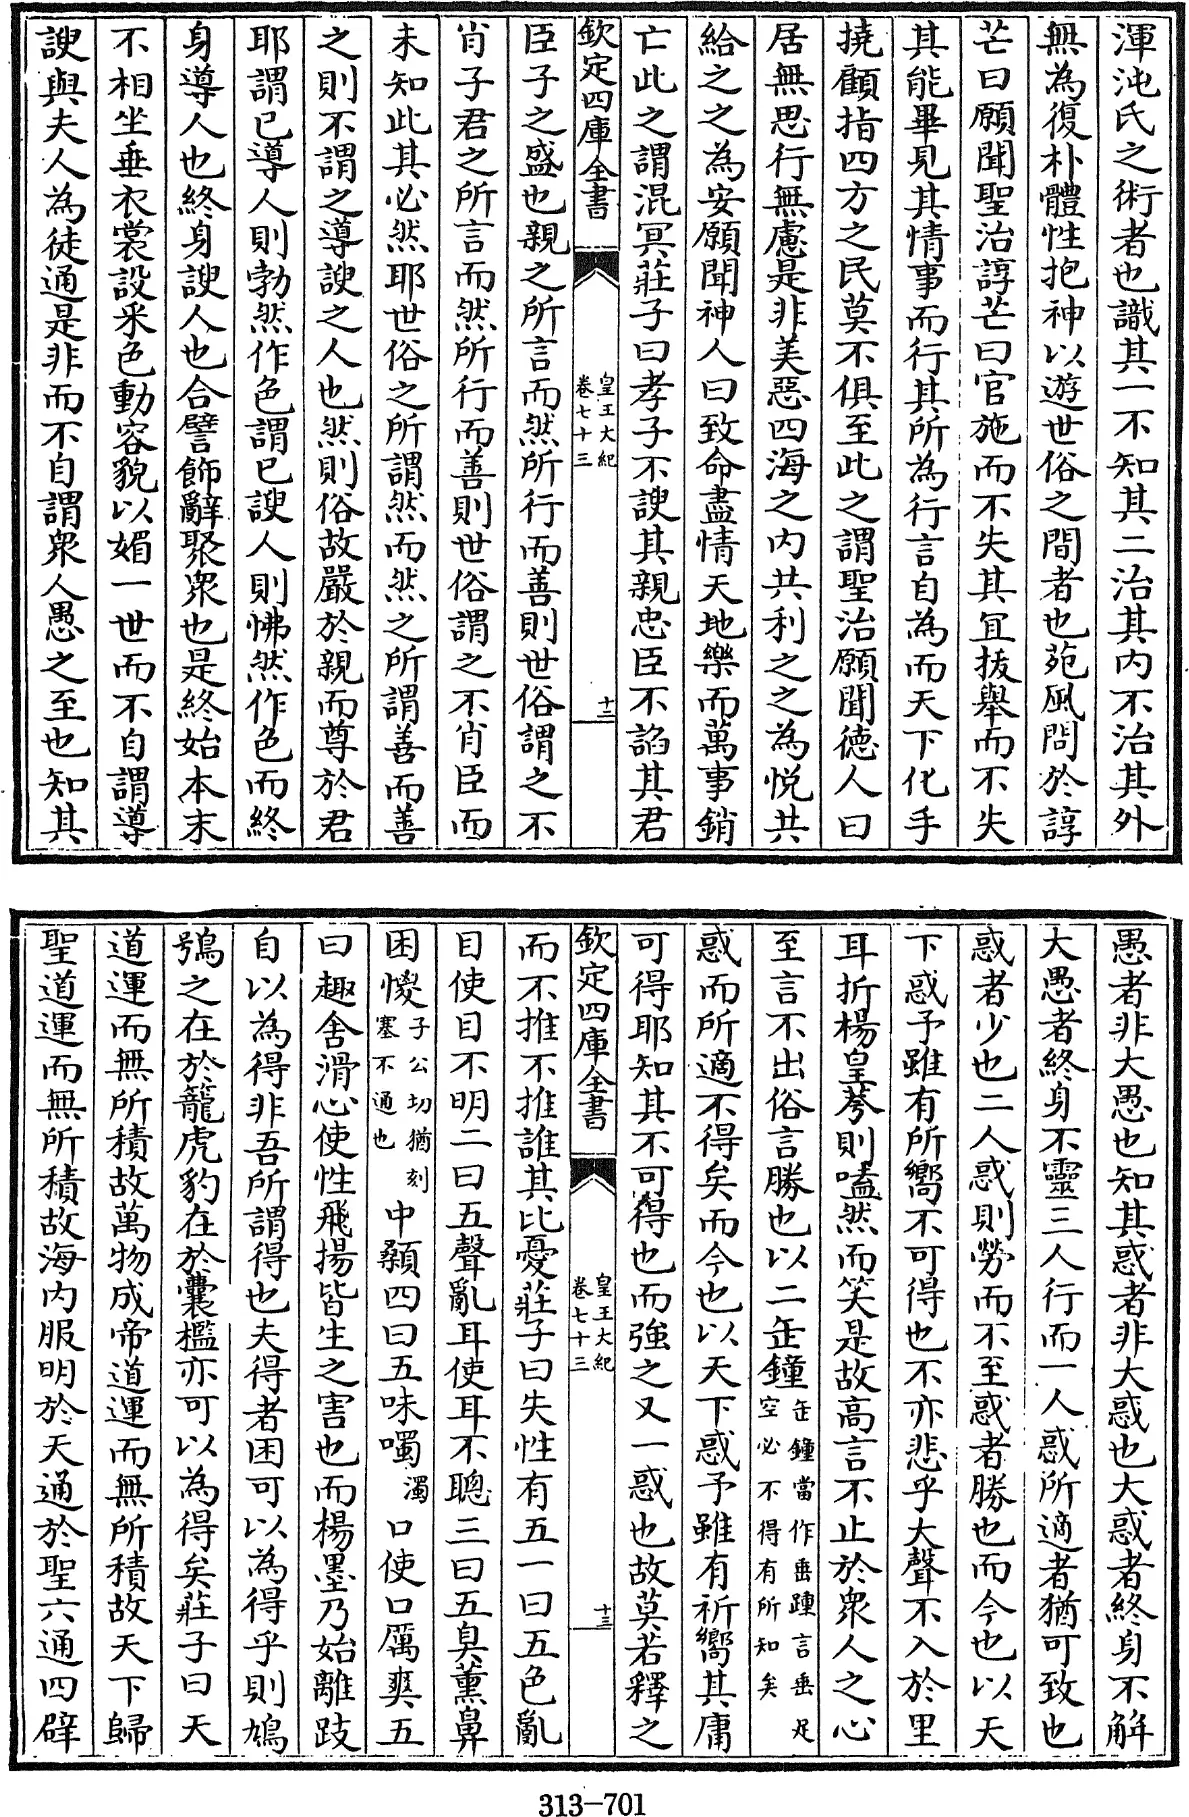 渾沌氏之術者也識其一不知其二治其内不治其外
無為復朴體性抱神以遊世俗之間者也苑風問於諄
芒曰願聞聖治諄芒曰官施而不失其宜拔舉而不失
其能畢見其情事而行其所為行言自為而天下化手
撓顧指四方之民莫不俱至此之謂聖治願聞徳人曰
居無思行無慮是非美惡四海之内共利之之為悦共
給之之為安願聞神人曰致命盡情天地樂而萬事銷
亡此之謂混冥莊子曰孝子不諛其親忠臣不諂其君
欽定四庫全書
皇王大紀
卷七十三
十二
臣子之盛也親之所言而然所行而善則世俗謂之不
肖子君之所言而然所行而善則世俗謂之不肖臣而
未知此其必然耶世俗之所謂然而然之所謂善而善
之則不謂之導諛之人也然則俗故嚴於親而尊於君
耶謂已導人則勃然作色謂已諛人則怫然作色而終
身導人也終身諛人也合譬飾辭聚衆也是終始本末
不相坐垂衣裳設采色動容貌以媚一世而不自謂導
諛與夫人為徒通是非而不自謂衆人愚之至也知其
愚者非大愚也知其惑者非大惑也大惑者終身不解
大愚者終身不靈三人行而一人惑所適者猶可致也
惑者少也二人惑則勞而不至惑者勝也而今也以天
下惑予雖有所嚮不可得也不亦悲乎大聲不入於里
耳折楊皇荂則嗑然而笑是故高言不止於衆人之心
至言不出俗言勝也以二缶鐘缶鐘當作垂踵言垂足空必不得有所知矣
惑而所適不得矣而今也以天下惑予雖有祈嚮其庸
可得耶知其不可得也而強之又一惑也故莫若釋之
欽定四庫全書
皇王大紀
卷七十三
十三
而不推不推誰其比憂莊子曰失性有五一曰五色亂
目使目不明二曰五聲亂耳使耳不聰三曰五臭薰鼻
困惾子公切猶刻塞不通也中顙四曰五味噣濁口使口厲爽五
曰趣舍滑心使性飛揚皆生之害也而楊墨乃始離跂
自以為得非吾所謂得也夫得者困可以為得乎則鳩
鴞之在於籠虎豹在於囊檻亦可以為得矣莊子曰天
道運而無所積故萬物成帝道運而無所積故天下歸
聖道運而無所積故海内服明於天通於聖六通四辟
313-701